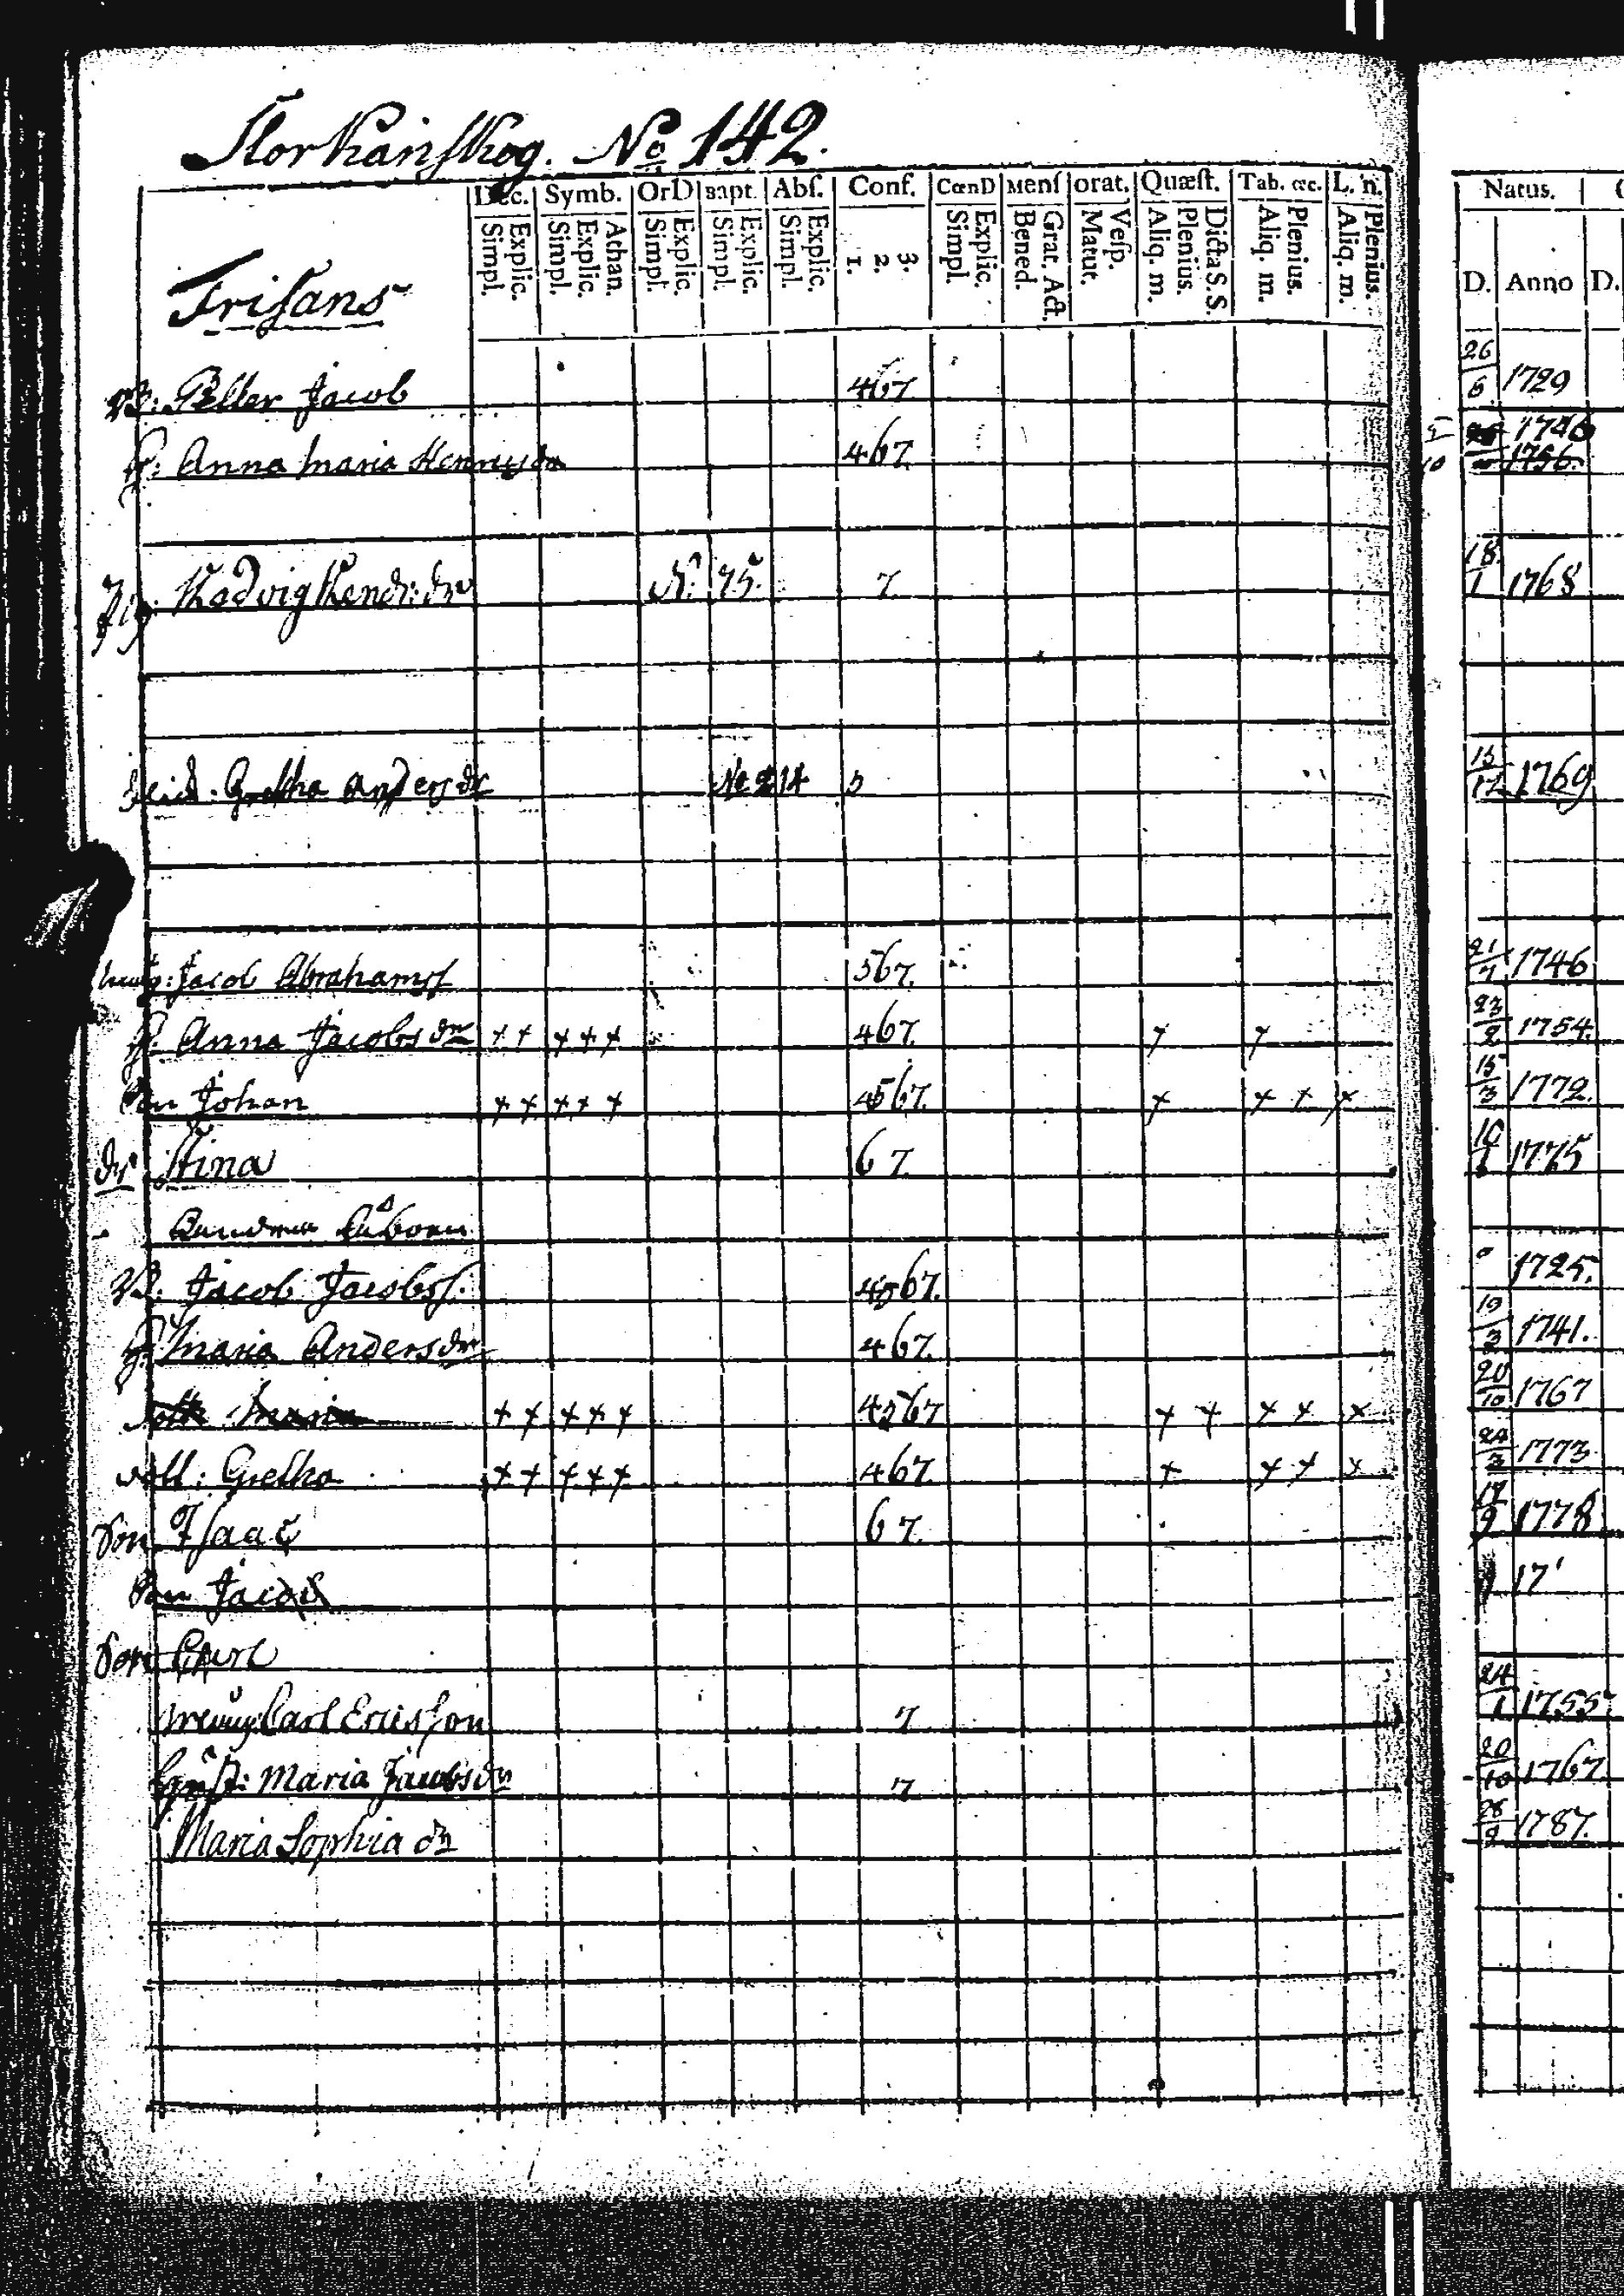 Storkånskog. No 142.
Dec. Symb. OrD Bapt. Abſ. Conf. CœnD Menſ orat. Quæſt. Tab. œc. L. n. Natus.
Explic. Simpl. Athan. Explic. Simpl. Explic. Simpl. Explic. Simpl. Explic. Simpl. 3. 2. 1. Explic. Simpl. Grat. Act. Bened. Veſp. Matut. Dicta S. S. Plenius. Aliq. m. Plenius. Aliq. m. Plenius. Aliq. m. D. Anno D.
Frisans
Petter Jacob 467. 26/6 1729
H: Anna Maria 467. 1746 1756.
Pig: Hedvig Hend: dr N: 75. 7. 18/1 1768
Gretha Anders dr No 214 5 13/12 1769
Jacob Abrahamss 567. 21/7 1746
H: Anna Jacobs dr + + + + + 467. + + 23/2 1754.
Son Johan + + + + + 4567. + + + + 15/3 1772.
dr Stina 67. 1775
Jacob Jacobss: 4567. 1725.
H: Maria Anders dr 467. 10/3 1741.
dott: Maria + + + + + 4567 + + + + + 20/10 1767
dott: Gretha + + + + + 467. + + + + 24/3 1773
Son Isaac 67. 17/9 1778
Son Jacob 17
Son Carl
Carl Ericsson 7 24/1 1755
Maria Jacobs dr 7 20/10 1767
Maria Sophia dr 28/9 1787.